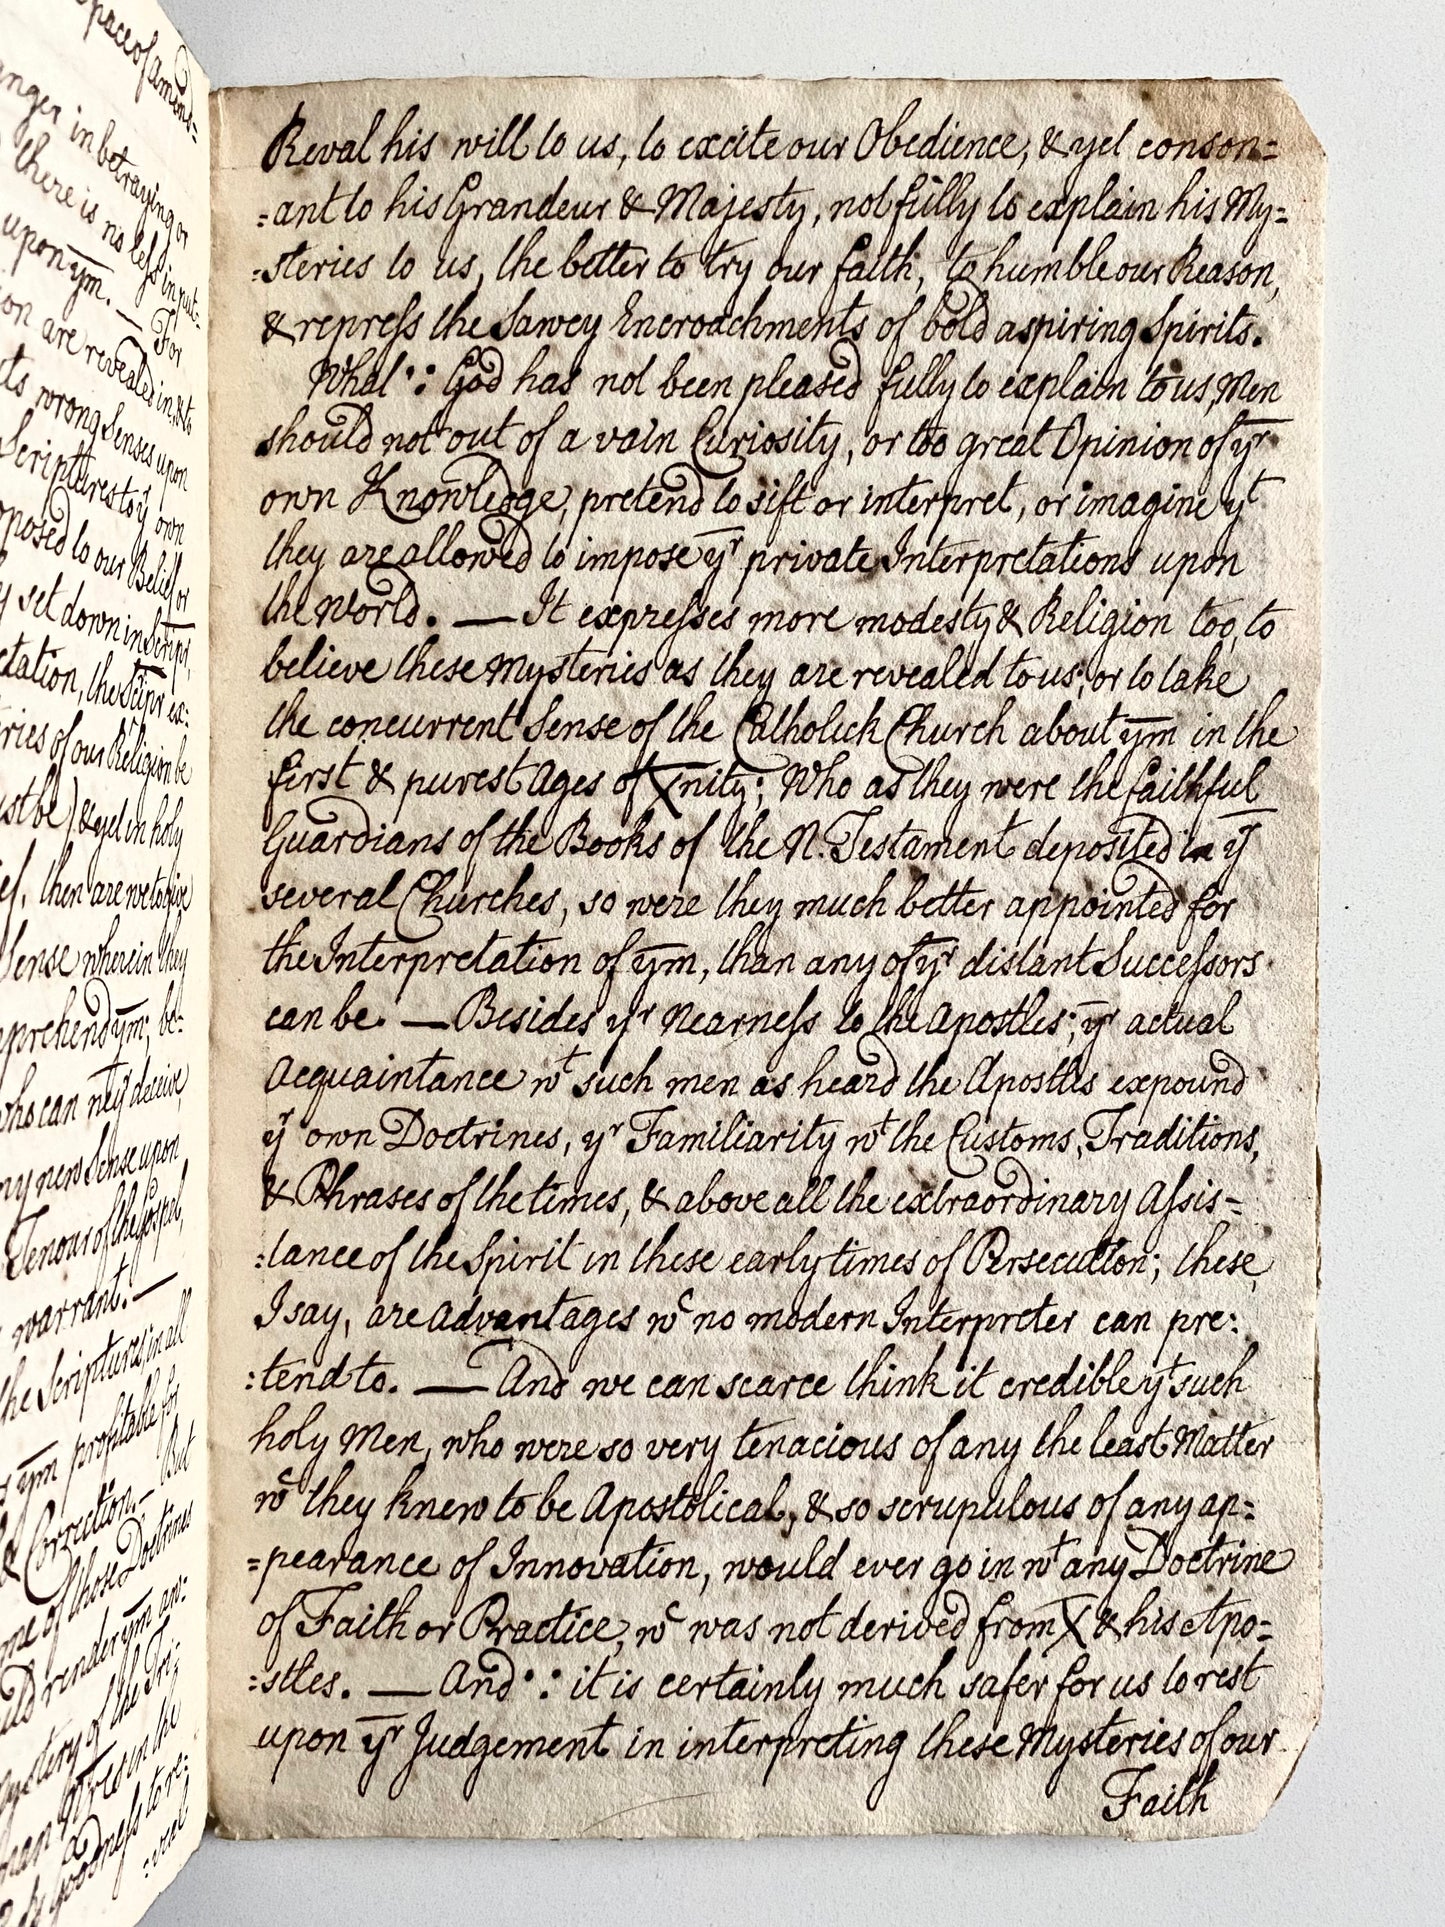 pace of amend-
anger in betraying or
there is no less in put-
upon ym. — For
ion are revealed in, & to
its wrong Senses upon
Scriptures to yr own
oposed to our Belief or
y set down in Script,
etation, the Scripr ex-
ries of our Religion be
ust be) & yet in holy
ef, then are we to give
Sense wherein they
pprehend ym; be-
who can neyr deceive,
ny new Sense upon
Tenour of the Gospel,
warrant. —
the Scriptures, in all
s ym profitable for
& Correction. — But
me of those Doctrines
uld render ym an-
ystery of the Tri-
han Wred in the
Goodness to re-
:veal
Reval his will to us, to excite our Obedience, & yet conson=
=ant to his Grandeur & Majesty, not fully to explain his My=
=steries to us, the better to try our faith, to humble our Reason,
& repress the Sawcy Encroachments of bold aspiring Spirits.
What ∵ God has not been pleased fully to explain to us, Men
should not out of a vain Curiosity, or too great Opinion of yr
own Knowledge, pretend to sift or interpret, or imagine yt
they are allowed to impose yr private Interpretations upon
the World. — It expresses more modesty & Religion too, to
believe these Mysteries as they are revealed to us; or to take
the concurrent Sense of the Catholick Church about ym in the
first & purest Ages of Xnity; Who as they were the faithful
Guardians of the Books of the N. Testament deposited in yr
several Churches, so were they much better appointed for
the Interpretation of ym, than any of yr distant Successors
can be. — Besides yr Nearness to the Apostles; yr actual
Acquaintance wt such men as heard the Apostles expound
yr own Doctrines, yr Familiarity wt the Customs, Traditions,
& Phrases of the times, & above all the extraordinary Assis=
=tance of the Spirit in these early times of Persecution; these,
I say, are Advantages wc no modern Interpreter can pre:
:tend to. — And we can scarce think it credible yt such
holy Men, who were so very tenacious of any the least Matter
wc they knew to be Apostolical, & so scrupulous of any ap=
=pearance of Innovation, would ever go in wt any Doctrine
of Faith or Practice, wc was not derived from X & his Apo=
:stles. — And ∵ it is certainly much safer for us to rest
upon yr Judgement in interpreting these Mysteries of our
Faith